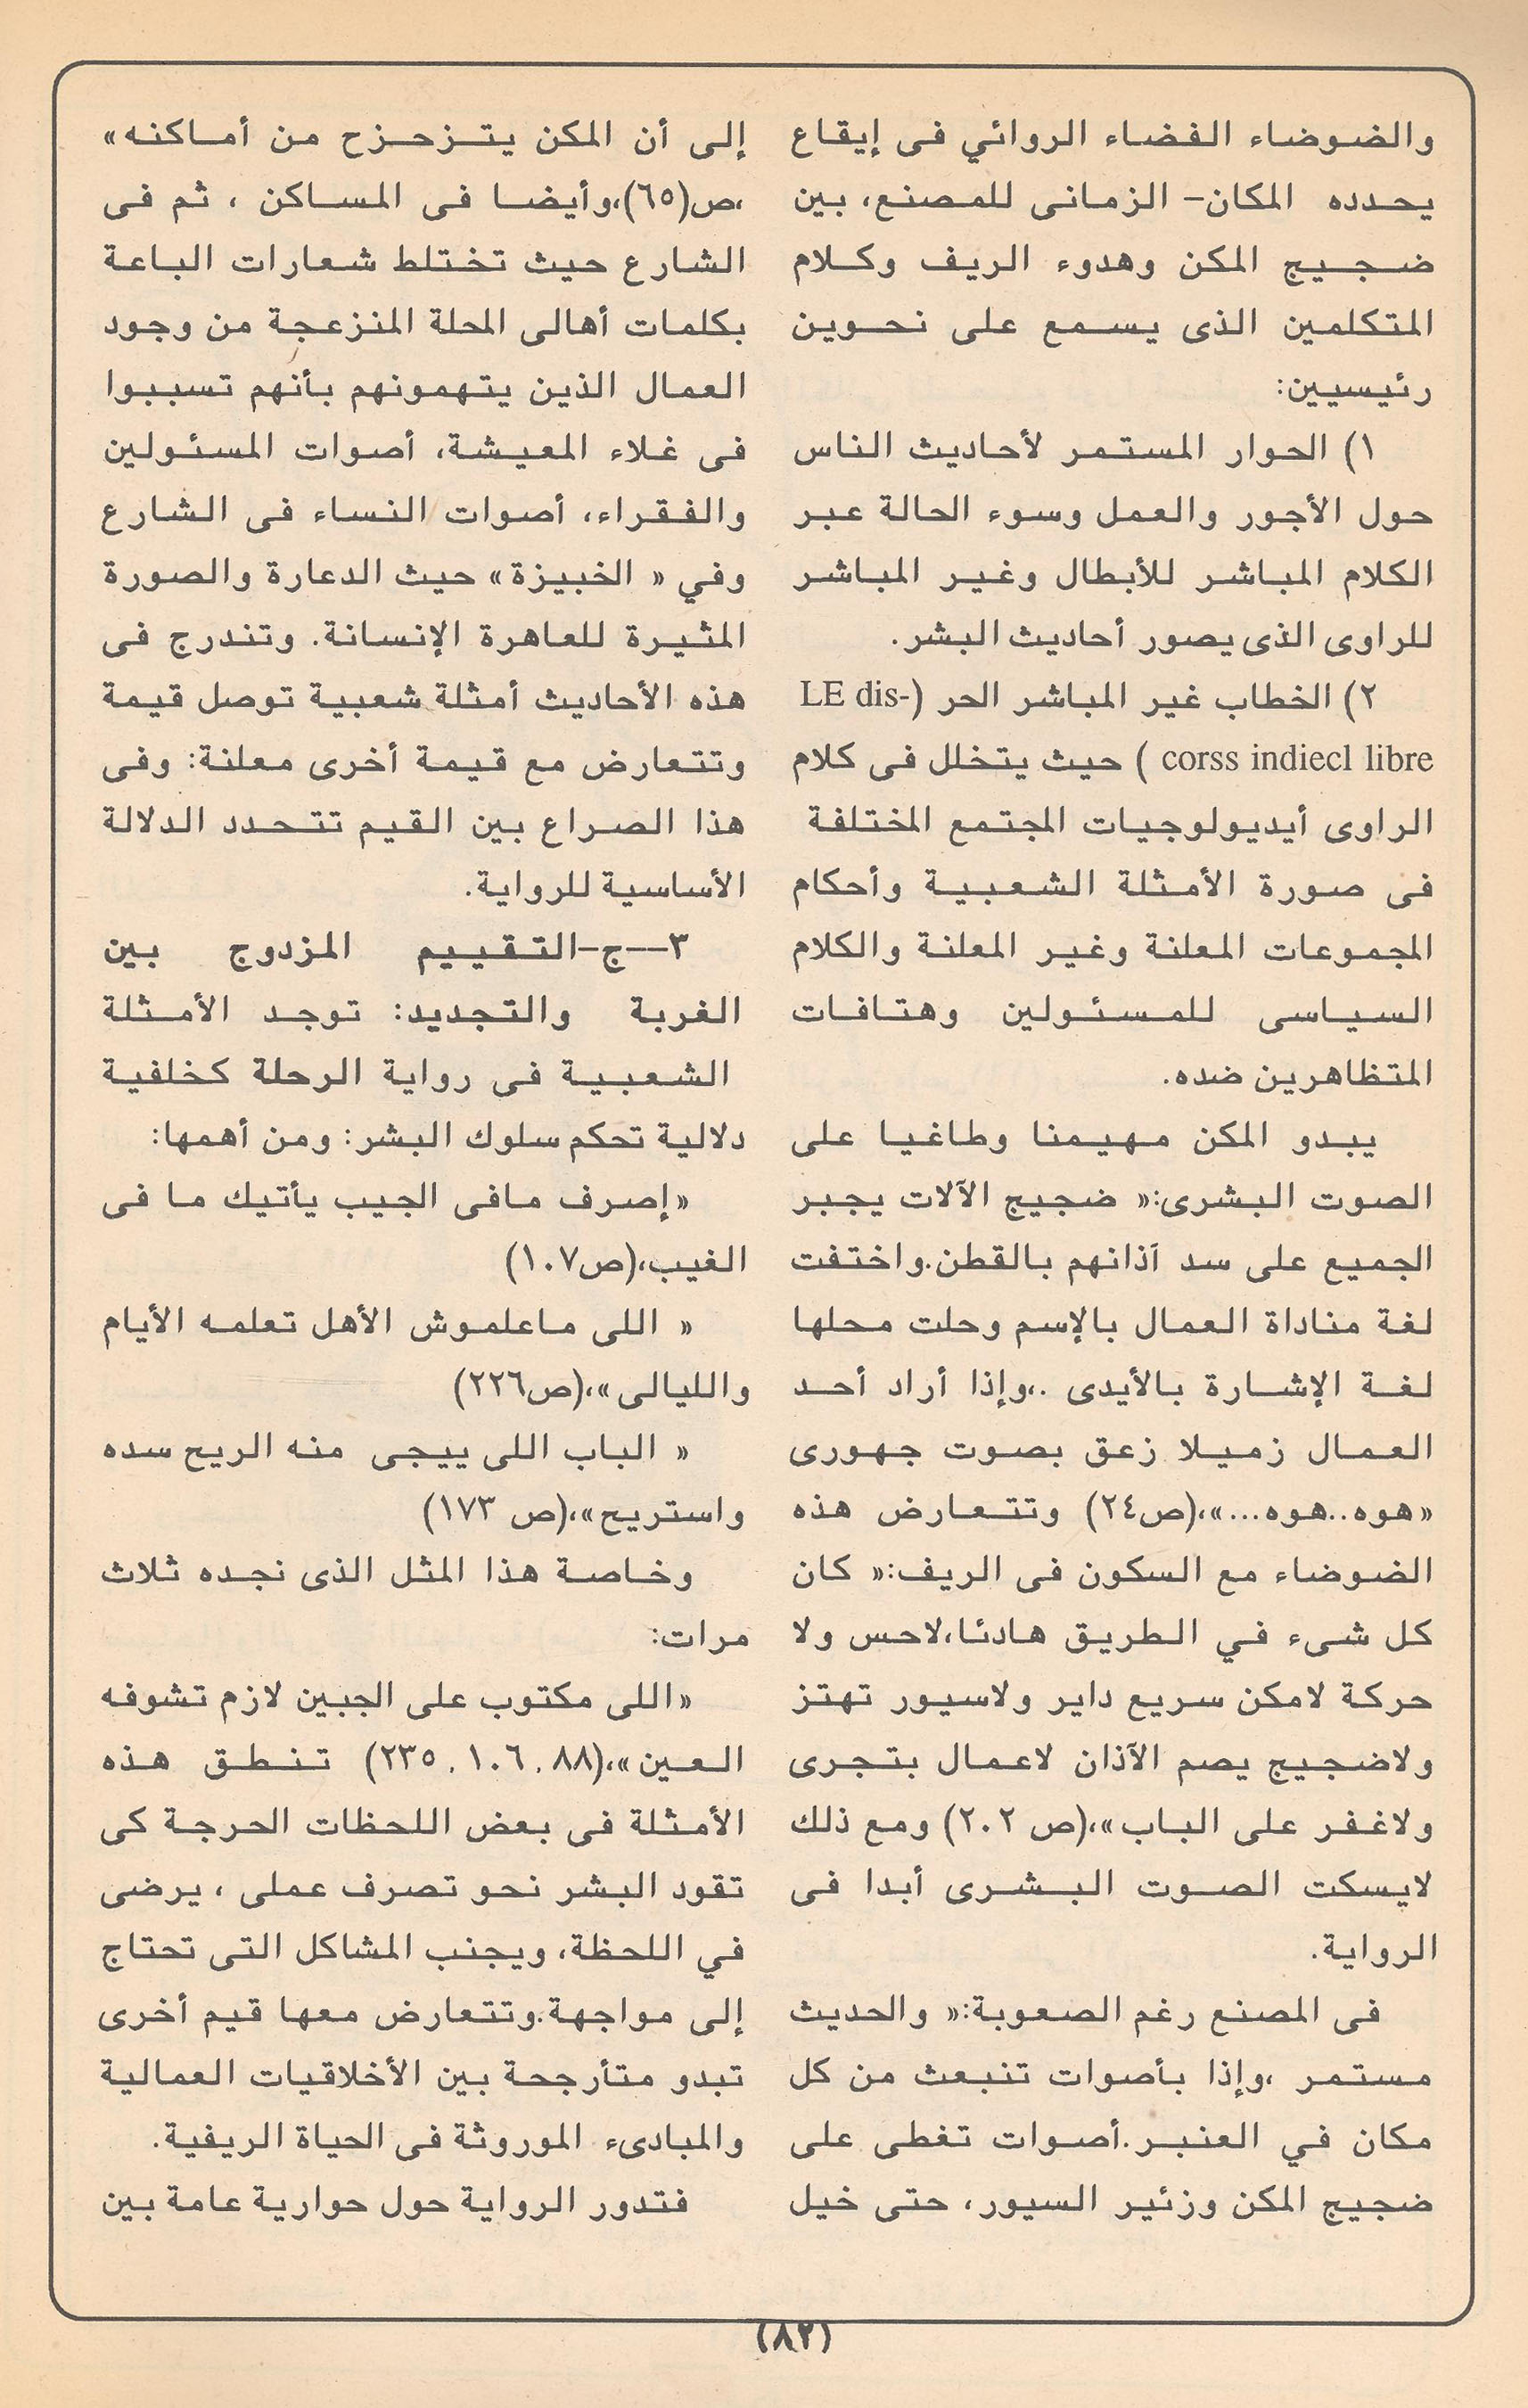 والضوضاء الفضاء الروائي فى إيقاع
يحدده المكان- الزمانى للمصنع، بين
ضجيج المكن وهدوء الريف وكلام
المتكلمين الذى يسمع على نحوين
رئيسيين:
١) الحوار المستمر لأحاديث الناس
حول الأجور والعمل وسوء الحالة عبر
الكلام المباشر للأبطال وغير المباشر
للراوى الذى يصور أحاديث البشر.
٢) الخطاب غير المباشر الحر (LE dis-
corss indiecl libre ) حيث يتخلل فى كلام
الراوى أيديولوجيات المجتمع المختلفة
فى صورة الأمثلة الشعبية وأحكام
المجموعات المعلنة وغير المعلنة والكلام
السياسى للمسئولين وهتافات
المتظاهرين ضده.
يبدو المكن مهيمنا وطاغيا على
الصوت البشرى:« ضجيج الآلات يجبر
الجميع على سد آذانهم بالقطن.واختفت
لغة مناداة العمال بالإسم وحلت محلها
لغة الإشارة بالأيدى .،وإذا أراد أحد
العمال زميلا زعق بصوت جهورى
«هوه..هوه...»،(ص٢٤) وتتعارض هذه
الضوضاء مع السكون فى الريف:« كان
كل شىء في الطريق هادئا،لاحس ولا
حركة لامكن سريع داير ولاسيور تهتز
ولاضجيج يصم الآذان لاعمال بتجرى
ولاغفر على الباب»،(ص ٢٠٢) ومع ذلك
لايسكت الصوت البشرى أبدا فى
الرواية.
فى المصنع رغم الصعوبة:« والحديث
مستمر ،وإذا بأصوات تنبعث من كل
مكان في العنبر.أصوات تغطى على
ضجيج المكن وزئير السيور، حتى خيل
إلى أن المكن يتزحزح من أماكنه»
،ص(٦٥)،وأيضا فى المساكن ، ثم فى
الشارع حيث تختلط شعارات الباعة
بكلمات أهالى المحلة المنزعجة من وجود
العمال الذين يتهمونهم بأنهم تسببوا
فى غلاء المعيشة، أصوات المسئولين
والفقراء، أصوات النساء فى الشارع
وفي « الخبيزة» حيث الدعارة والصورة
المثيرة للعاهرة الإنسانة. وتندرج فى
هذه الأحاديث أمثلة شعبية توصل قيمة
وتتعارض مع قيمة أخرى معلنة: وفى
هذا الصراع بين القيم تتحدد الدلالة
الأساسية للرواية.
٣--ج-التقييم المزدوج بين
الغربة والتجديد: توجد الأمثلة
الشعبية فى رواية الرحلة كخلفية
دلالية تحكم سلوك البشر: ومن أهمها:
«إصرف مافى الجيب يأتيك ما فى
الغيب،(ص١٠٧)
« اللى ماعلموش الأهل تعلمه الأيام
والليالى»،(ص٢٢٦)
« الباب اللى ييجى منه الريح سده
واستريح»،(ص ١٧٣)
وخاصة هذا المثل الذى نجده ثلاث
مرات:
«اللى مكتوب على الجبين لازم تشوفه
العين»،(٨٨, ١٠٦, ٢٣٥) تنطق هذه
الأمثلة فى بعض اللحظات الحرجة كى
تقود البشر نحو تصرف عملى ، يرضى
في اللحظة، ويجنب المشاكل التى تحتاج
إلى مواجهة.وتتعارض معها قيم أخرى
تبدو متأرجحة بين الأخلاقيات العمالية
والمبادىء الموروثة فى الحياة الريفية.
فتدور الرواية حول حوارية عامة بين
(٨٢)